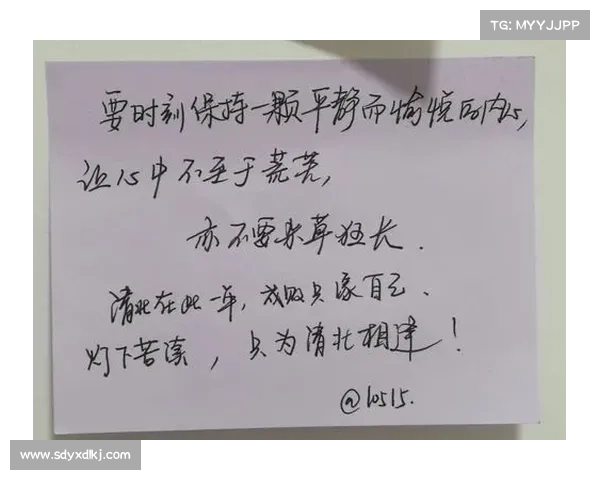 TG: MYYJJPP
要时刻保持一颗平静而愉悦的内心,
让心中不至于荒芜,
亦不要杂草狂长.
清北在此一年,成败只家自己、
灯下苦读,只为清北相逢!
@10515.
www.sdyxdlkj.com